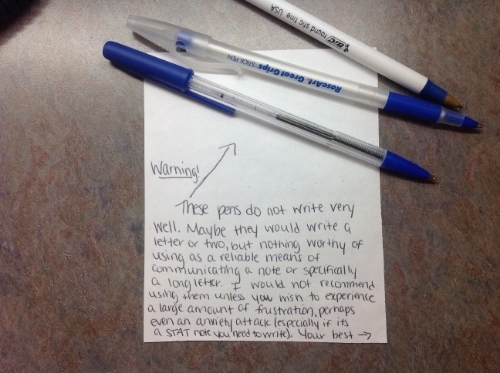 BIC round stic fine USA
RoseArt Great Grips STICK PEN
Warning!
These pens do not write very
well. Maybe they would write a
letter or two, but nothing worthy of
using as a reliable means of
communicating a note or specifically
a long letter. I would not recommend
using them unless you wish to experience
a large amount of frustration, perhaps
even an anxiety attack (especially if its
a STAT note you need to write). Your best →